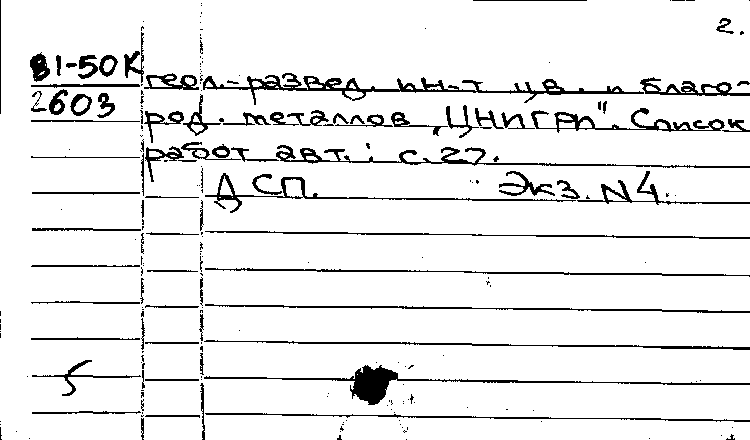 2.
81-50К геол.-развед. ин-т цв. и благо-
2603 род. металлов „ЦНИГРИ". Список
работ авт.: с.27.
ДСП. Экз. N4.
5